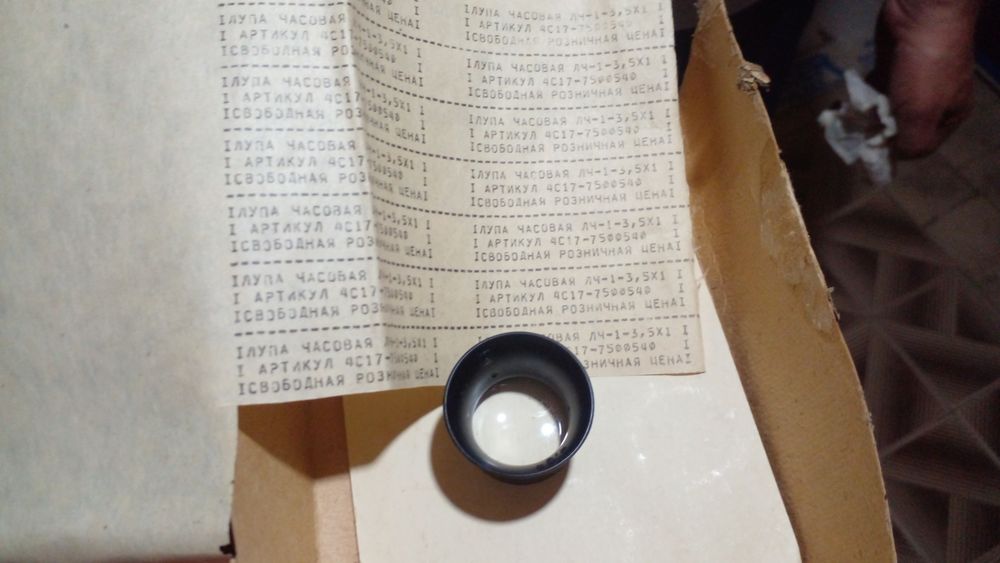 IЛУПА ЧАСОВАЯ
I АРТИКУЛ 4С17-
IСВОБОДНАЯ РОЗНИЧНАЯ ЦЕНАI
IЛУПА ЧАСОВАЯ ЛЧ-1-3,5X1 I
I АРТИКУЛ 4С17-7500540 I
IСВОБОДНАЯ РОЗНИЧНАЯ ЦЕНАI
IЛУПА ЧАСОВАЯ -1-3,5X1 I
I АРТИКУЛ 4С17-7500540 I
IСВОБОДНАЯ РОЗНИЧНАЯ ЦЕНАI
IЛУПА ЧАСОВАЯ ЛЧ-1-3,5X1 I
I АРТИКУЛ 4С17-7500540 I
IСВОБОДНАЯ РОЗНИЧНАЯ ЦЕНАI
IЛУПА ЧАСОВАЯ -1-3,5X1 I
I АРТИКУЛ 4С17-7500540 I
IСВОБОДНАЯ РОЗНИЧНАЯ ЦЕНАI
IЛУПА ЧАСОВАЯ ЛЧ-1-3,5X1 I
I АРТИКУЛ 4С17-7500540 I
IСВОБОДНАЯ РОЗНИЧНАЯ ЦЕНАI
IЛУПА ЧАСОВАЯ -1-3,5X1 I
I АРТИКУЛ 4С17-7500540 I
IСВОБОДНАЯ РОЗНИЧНАЯ ЦЕНАI
IЛУПА ЧАСОВАЯ ЛЧ-1-3,5X1 I
I АРТИКУЛ 4С17-7500540 I
IСВОБОДНАЯ РОЗНИЧНАЯ ЦЕНАI
IЛУПА ЧАСОВАЯ -1-3,5X1 I
I АРТИКУЛ 4С17-7500540 I
IСВОБОДНАЯ РОЗНИЧНАЯ ЦЕНАI
IЛУПА ЧАСОВАЯ ЛЧ-1-3,5X1 I
I АРТИКУЛ 4С17-7500540 I
IСВОБОДНАЯ РОЗНИЧНАЯ ЦЕНАI
IЛУПА ЧАСОВАЯ -1-3,5X1 I
I АРТИКУЛ 4С17-7500540 I
IСВОБОДНАЯ РОЗНИЧНАЯ ЦЕНАI
IЛУПА ЧАСОВАЯ ЛЧ-1-3,5X1 I
I АРТИКУЛ 4С17-7500540 I
IСВОБОДНАЯ РОЗНИЧНАЯ ЦЕНАI